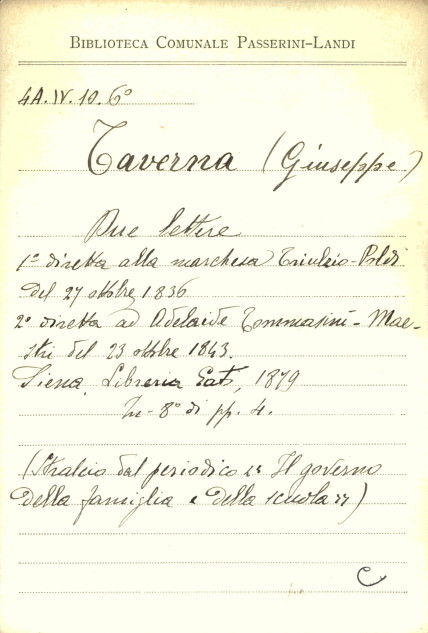 BIBLIOTECA COMUNALE PASSERINI-LANDI
4A.IV.10.6°
Taverna (Giuseppe)
Due lettere
1ª diretta alla marchesa Triulzio-Poldi
del 27 ottobre 1836
2ª diretta ad Adelaide Tommasini-Mae-
stri del 23 ottobre 1843.
Siena, Libreria 1879
In-8° di pp. 4.
(Stralcio dal periodico "Il governo
della famiglia e della scuola")
C